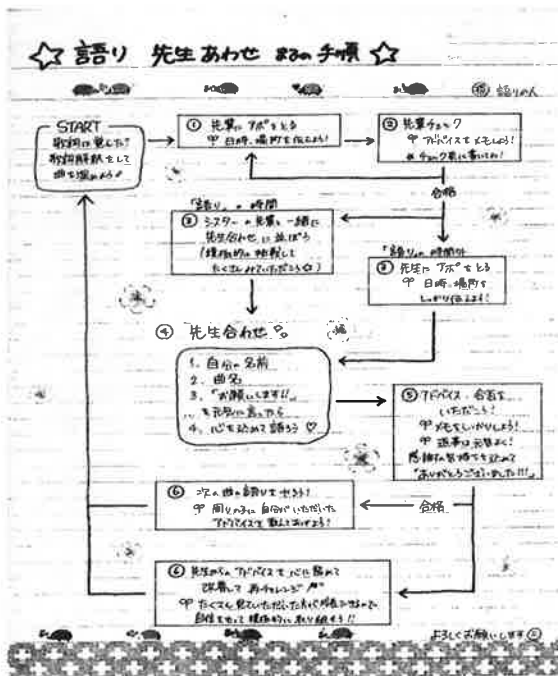 ☆ 語り 先生あわせ までの手順 ☆
語りの人
START
歌詞は覚えた?
歌詞解釈をして
曲を深めよう♪
① 先輩に アポをとる
日時、場所を伝えよう!
② 先輩チェック
アドバイスをメモしよう!
合格
「語り」の時間
③ シスターの先輩と一緒に
先生合わせに並ぼう
(積極的に挑戦して
たくさんみていただこう☆)
「語り」の時間外
③ 先生に アポをとる
日時、場所を
しっかり伝えよう!
④ 先生合わせ
1. 自分の名前
2. 曲名
3. 「お願いします!!」
を元気に言ったら
4. 心を込めて語ろう ♡
⑤ アドバイス・合否を
いただこう!
メモをしっかりしよう!
返事は元気よく!
感謝の気持ちを込めて
「ありがとうございました!!!」
合格
⑥ 次の曲の語りをしよう!
周りの子に自分がいただいた
アドバイスを
⑥ 先生からのアドバイスを心に留めて
改善して 再チャレンジ
たくさん見ていただいた
自信をもって積極的に取り組もう!!
よろしくお願いします